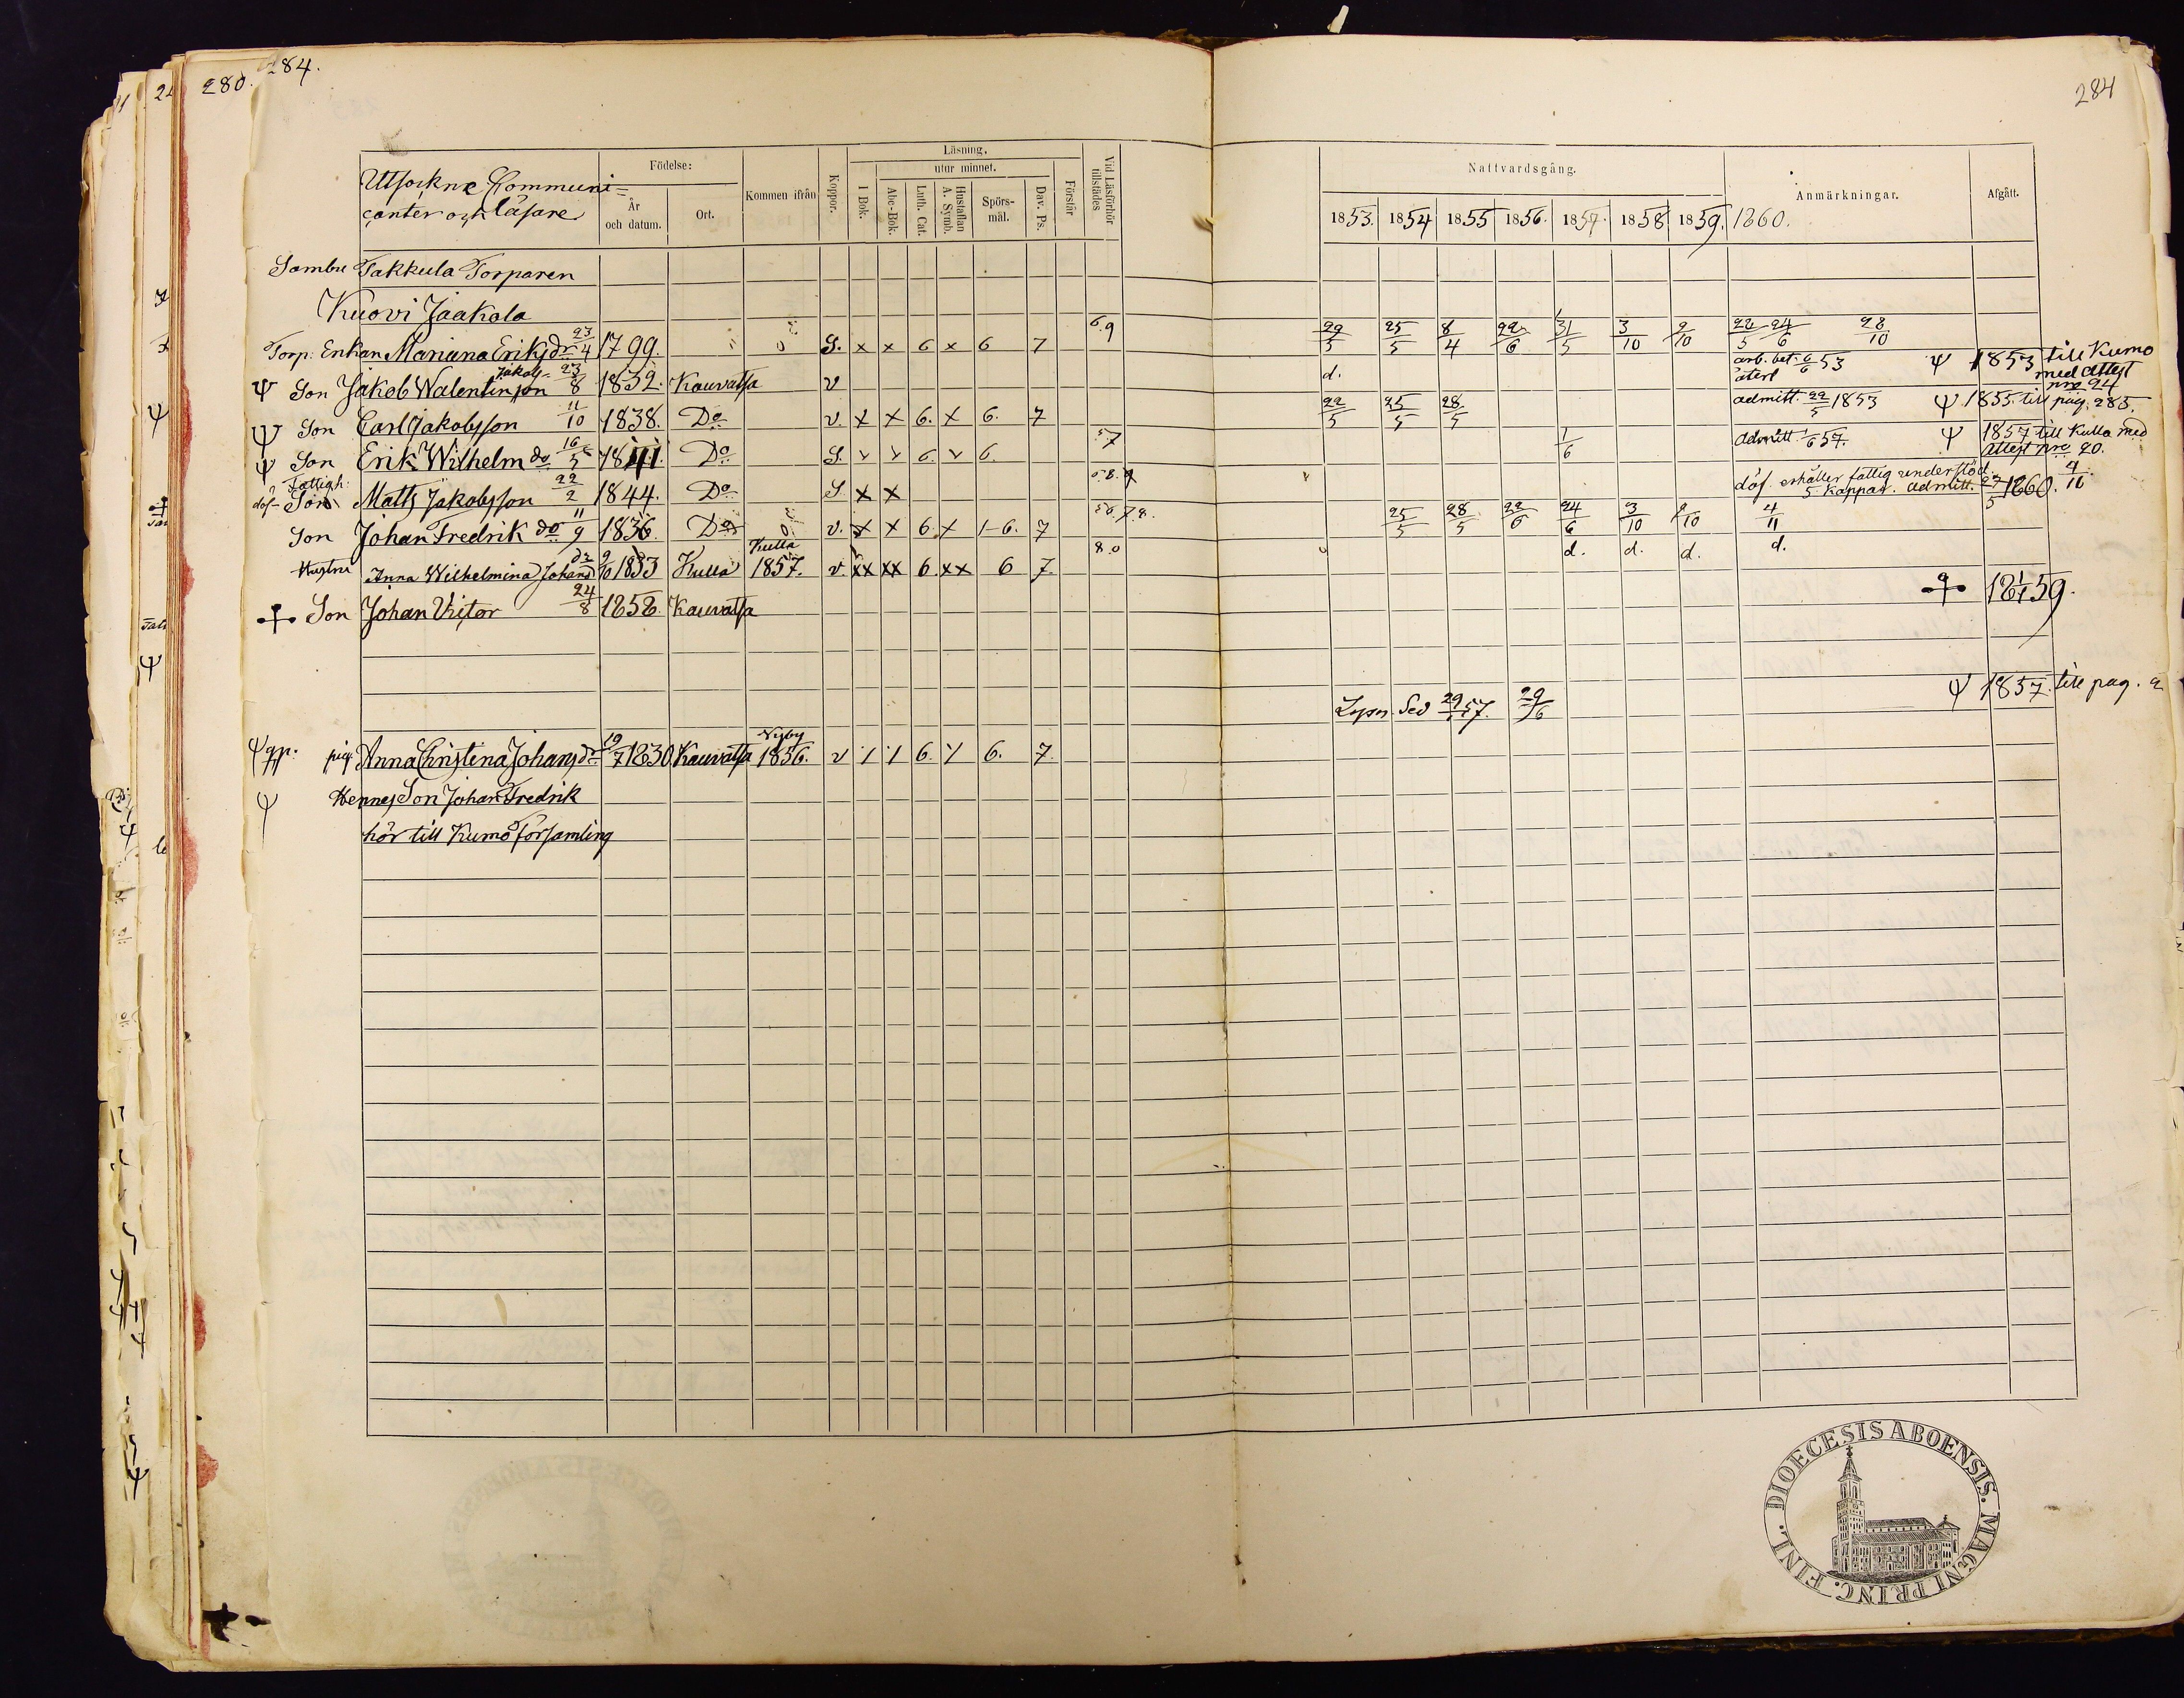 280. 284.
284
Utsockne Communi=
canter och läsare
Födelse:
År och datum.
Ort.
Kommen ifrån
Koppor.
Läsning.
utur minnet.
I Bok.
Abc-Bok.
Luth. Cat.
Hustaflan A. Symb.
Spörs-mål.
Dav. Ps.
Förstår
Vid Läsförhör tillstädes
Nattvardsgång.
Anmärkningar.
Afgått.
1853. 1854 1855 1856. 1857. 1858 1859. 1860.
Sambu Takkula Torparen
Kuovi Jaakola
Torp. Enkan Mariana Eriksdr 23/4 1799. S. x x 6 x 6 7 6.9 29/5 25/5 8/4 22/6 31/5 3/10 9/10 22/5 24/6 28/10
Ψ Son Jakob Walentinson Jakobs- 23/8 1832. Kauvatsa v d. arb. bet. 6/6 53 återl Ψ 1853 till Kumo med attest nro 94
Ψ Son Carl Jakobsson 11/10 1838. Do v. x x 6. x 6. 7 22/5 25/5 28/5 admitt. 22/5 1853 Ψ 1855. till pag. 285.
Ψ Son Erik Wilhelm do 16/5 1841. Do S. 6. 6. 57 1/6 admitt. 1/6 57. Ψ 1857 till Kulla med attest nro 20.
döf- Fattigh. Son Matts Jakobsson 22/2 1844. Do S x x 5.8.9 döf. erhåller fattig understöd. 5 kappar. admitt. 27/5 1860. 4/11
Son Johan Fredrik do 11/9 1836. Do v. x x 6. x 1-6. 7 5.6.7.8. 25/5 28/5 22/6 24/6 3/10 9/10 4/11
Hustru Anna Wilhelmina Johansdr 9/10 1833 Kulla Kulla 1857. v. xx xx 6. xx 6 7. 8.0 d. d. d. d.
Son Johan Victor 24/8 1858. Kauvatsa 1859.
Ψ pig. Anna Christina Johansdr 19/7 1830 Kauvatsa Nyby 1856. v 6. 6. 7. 57. 29/6 Ψ 1857. till pag.
Ψ Hennes Son Johan Fredrik
hör till Kumo församling
DIOECESIS ABOENSIS. MAGNI PRINC. FINL.